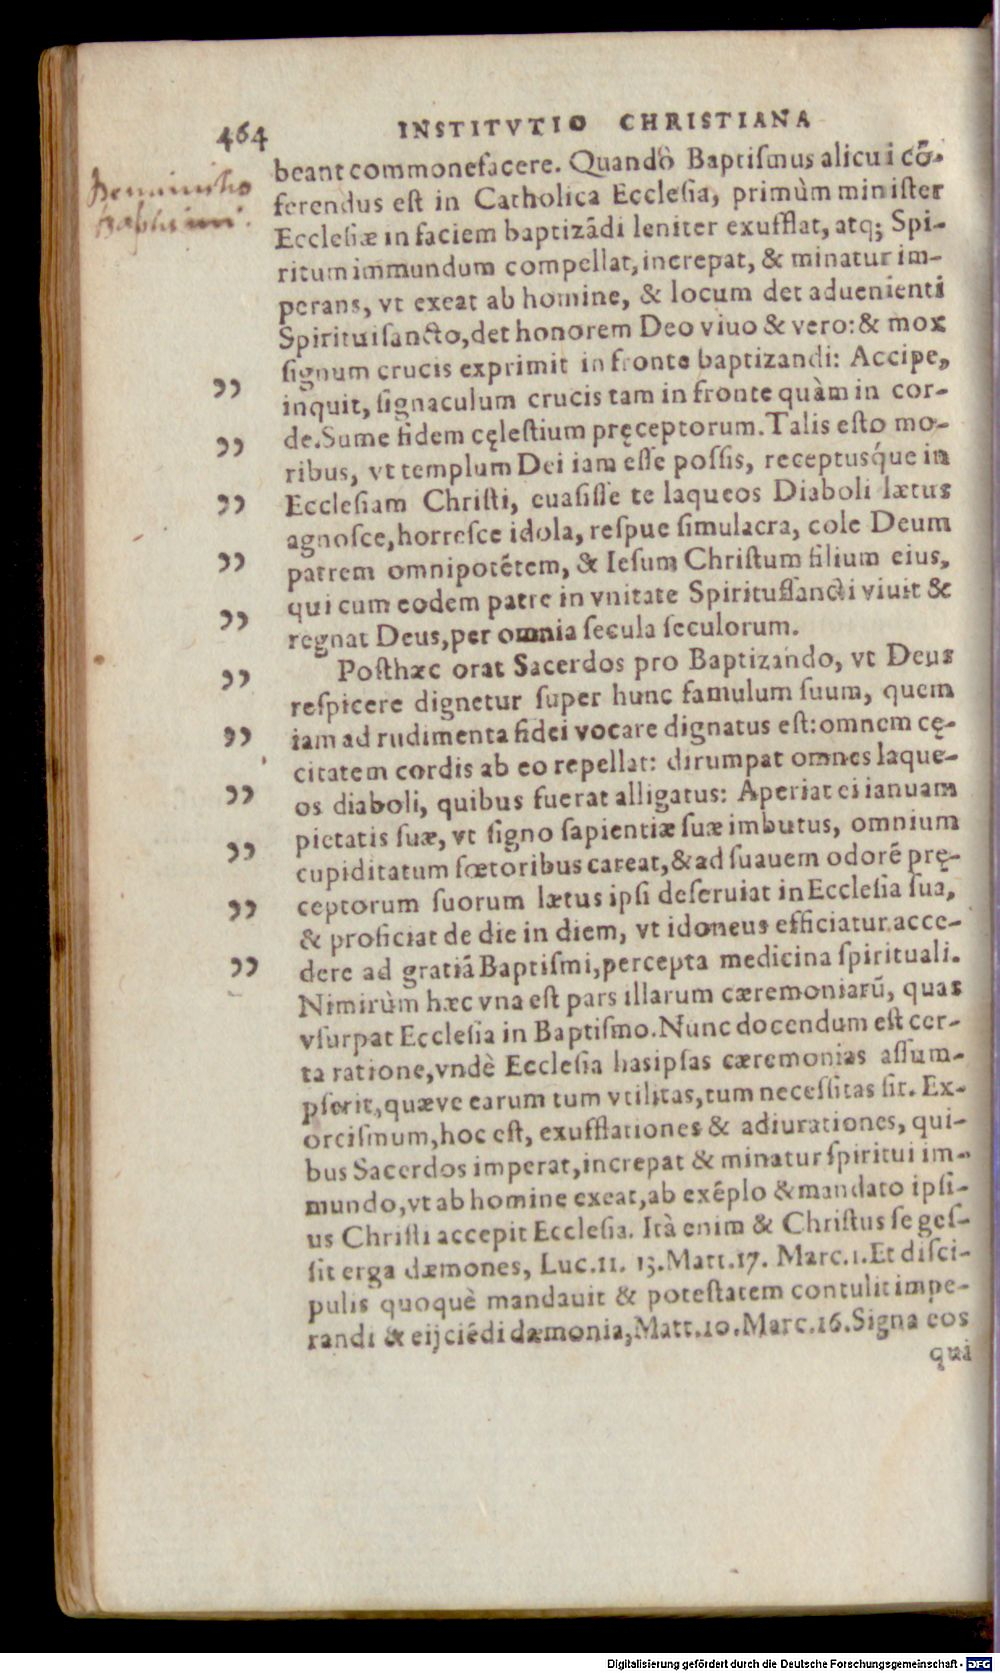 464 INSTITVTIO CHRISTIANA
beant commonefacere. Quandò Baptiſmus alicui cõ-
ferendus eſt in Catholica Eccleſia, primùm miniſter
Eccleſiæ in faciem baptizãdi leniter exufflat, atq; Spi-
ritum immundum compellat, increpat, & minatur im-
perans, vt exeat ab homine, & locum det aduenienti
Spirituiſancto, det honorem Deo viuo & vero: & mox
ſignum crucis exprimit in fronte baptizandi: Accipe,
inquit, ſignaculum crucis tam in fronte quàm in cor-
de. Sume fidem cęleſtium pręceptorum. Talis eſto mo-
ribus, vt templum Dei iam eſſe poſſis, receptusq́ue in
Eccleſiam Chriſti, euaſiſſe te laqueos Diaboli lætus
agnoſce, horreſce idola, reſpue ſimulacra, cole Deum
patrem omnipotẽtem, & Ieſum Chriſtum filium eius,
qui cum eodem patre in vnitate Spirituſſancti viuit &
regnat Deus, per omnia ſecula ſeculorum.
Poſthæc orat Sacerdos pro Baptizando, vt Deus
reſpicere dignetur ſuper hunc famulum ſuum, quem
iam ad rudimenta fidei vocare dignatus eſt: omnem cę-
citatem cordis ab eo repellat: dirumpat omnes laque-
os diaboli, quibus fuerat alligatus: Aperiat ei ianuam
pietatis ſuæ, vt ſigno ſapientiæ ſuæ imbutus, omnium
cupiditatum fœtoribus careat, & ad ſuauem odorẽ prę-
ceptorum ſuorum lætus ipſi deſeruiat in Eccleſia ſua,
& proficiat de die in diem, vt idoneus efficiatur acce-
dere ad gratiã Baptiſmi, percepta medicina ſpirituali.
Nimirùm hæc vna eſt pars illarum cæremoniarũ, quas
vſurpat Eccleſia in Baptiſmo. Nunc docendum eſt cer-
ta ratione, vndè Eccleſia haſipſas cæremonias aſſum-
pſerit, quæve earum tum vtilitas, tum neceſſitas ſit. Ex-
orciſmum, hoc eſt, exufflationes & adiurationes, qui-
bus Sacerdos imperat, increpat & minatur ſpiritui im-
mundo, vt ab homine exeat, ab exẽplo & mandato ipſi-
us Chriſti accepit Eccleſia. Ità enim & Chriſtus ſe geſ-
ſit erga dæmones, Luc. 11. 13. Matt. 17. Marc. 1. Et diſci-
pulis quoquè mandauit & poteſtatem contulit impe-
randi & eijciẽdi dæmonia, Matt. 10. Marc. 16. Signa eos
qui
”
”
”
”
”
”
”
”
”
”
”
baptismi